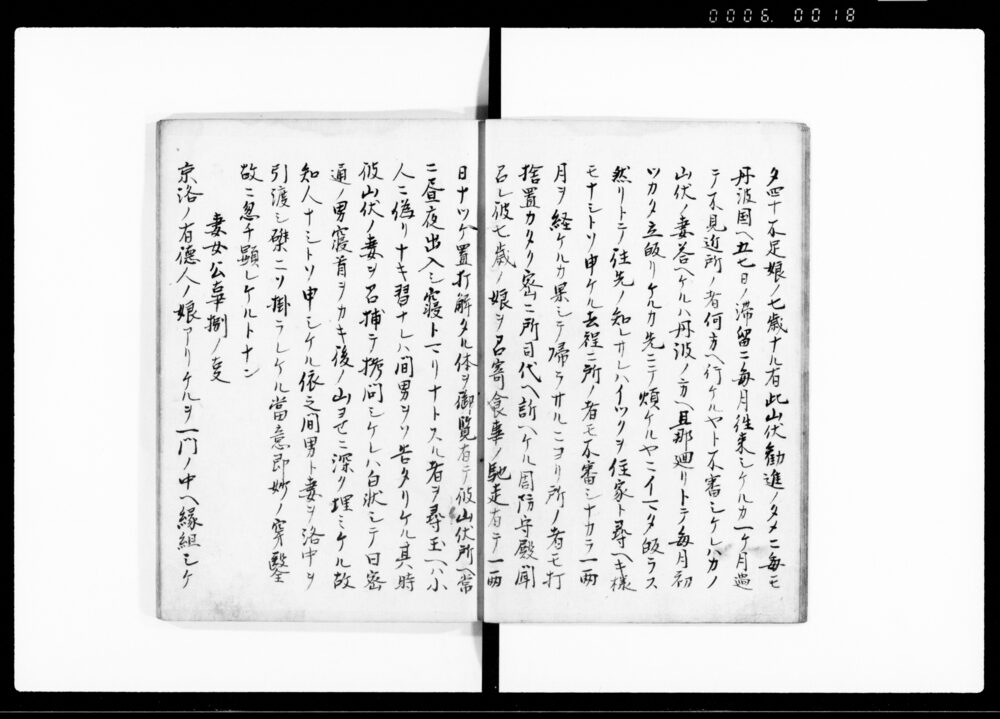 0006. 0018
タ四十不足娘ノ七歳ナル有此山伏勧進ノタメニ毎モ
丹波国ヘ五七日ノ滞留ニ毎月往来シケルカ一ケ月過
テ不見近所ノ者何方ヘ行ケルヤト不審シケレハカノ
山伏ノ妻答ヘケルハ丹波ノ方ヘ旦那廻リトテ毎月初
ツカタ立皈リケルカ先ニテ煩ケルヤニイマタ皈ラス
然リトテ往先ノ知レサレハイツクヲ住家ト尋ヘキ様
モナシトソ申ケル去程ニ所ノ者モ不審シナカラ一両
月ヲ経ケルカ果シテ帰ラサルニヨリ所ノ者モ打
捨置カタク密ニ所司代ヘ訴ヘケル周防守殿聞
召レ彼七歳ノ娘ヲ召寄食事ノ馳走有テ一両
日ナツケ置打解タル体ヲ御覧有テ彼山伏所ヘ常
ニ昼夜出入シ寝トマリナトスル者ヲ尋玉ヘハ小
人ニ偽リナキ習ナレハ間男ヲソ告タリケル其時
彼山伏ノ妻ヲ召捕テ拷問シケレハ白状シテ曰密
通ノ男寝首ヲカキ後ノ山ヨセニ深ク埋ミケル故
知人ナシトソ申シケル依之間男ト妻ヲ洛中ヲ
引渡シ磔ニソ掛ラレケル當意即妙ノ穿鑿
故ニ忽チ顕レケルトナン
妻女公事捌ノ事
京洛ノ有徳人ノ娘アリケルヲ一門ノ中ヘ縁組シケ